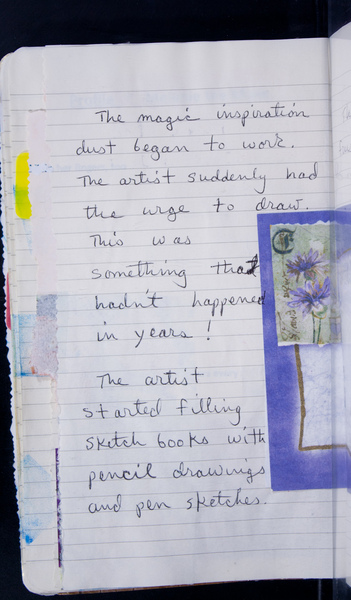 The magic inspiration
dust began to work.
The artist suddenly had
the urge to draw.
This was
something that
hadn't happened
in years!
The artist
started filling
sketch books with
pencil drawings
and pen sketches.